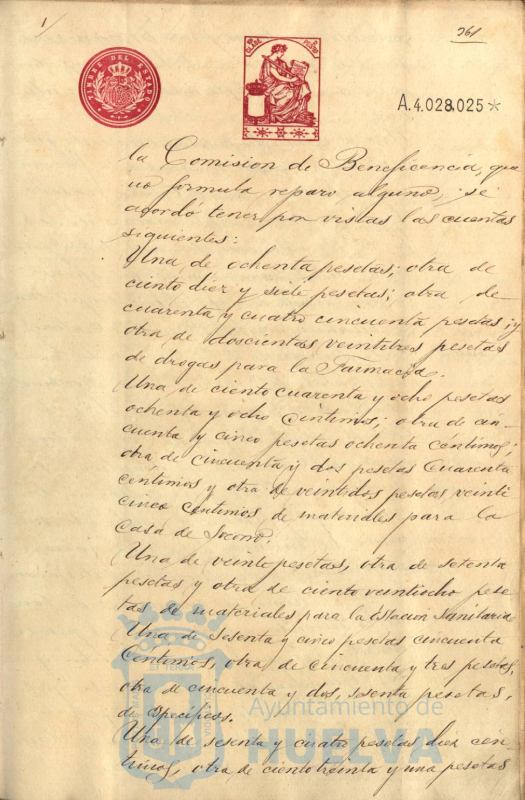 1
261
TIMBRE DEL ESTADO
CLASE
A.4.028,025*
la Comision de Beneficencia, que
no formula reparo alguno, se
acordó tener por vistas las cuentas
siguientes:
Una de ochenta pesetas; otra de
ciento diez y siete pesetas; otra de
cuarenta y cuatro cincuenta pesetas; y
otra de doscientas veintitres pesetas
de drogas para la Farmacia.
Una de ciento cuarenta y ocho pesetas
ochenta y ocho céntimos; otra de cin-
cuenta y cinco pesetas ochenta céntimos;
otra de cincuenta y dos pesetas cuarenta
céntimos y otra de veintidos pesetas veinti
cinco céntimos de materiales para la
Casa de Socorro.
Una de veinte pesetas, otra de setenta
pesetas y otra de ciento veintiocho pese
tas de materiales para la Estacion Sanitaria
Una de sesenta y cinco pesetas cincuenta
céntimos, otra de cincuenta y tres pesetas,
otra de cincuenta y dos, sesenta pesetas,
de específicos.
Una de sesenta y cuatro pesetas diez cen
timos, otra de ciento treinta y una pesetas
Ayuntamiento de
HUELVA